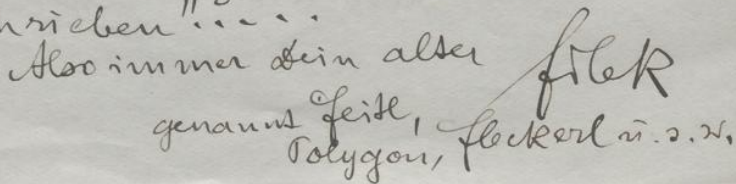 rieben"!....
Also immer Dein alter Filek
genannt Feitl,
Polygon, Fleckerl u.s.w.